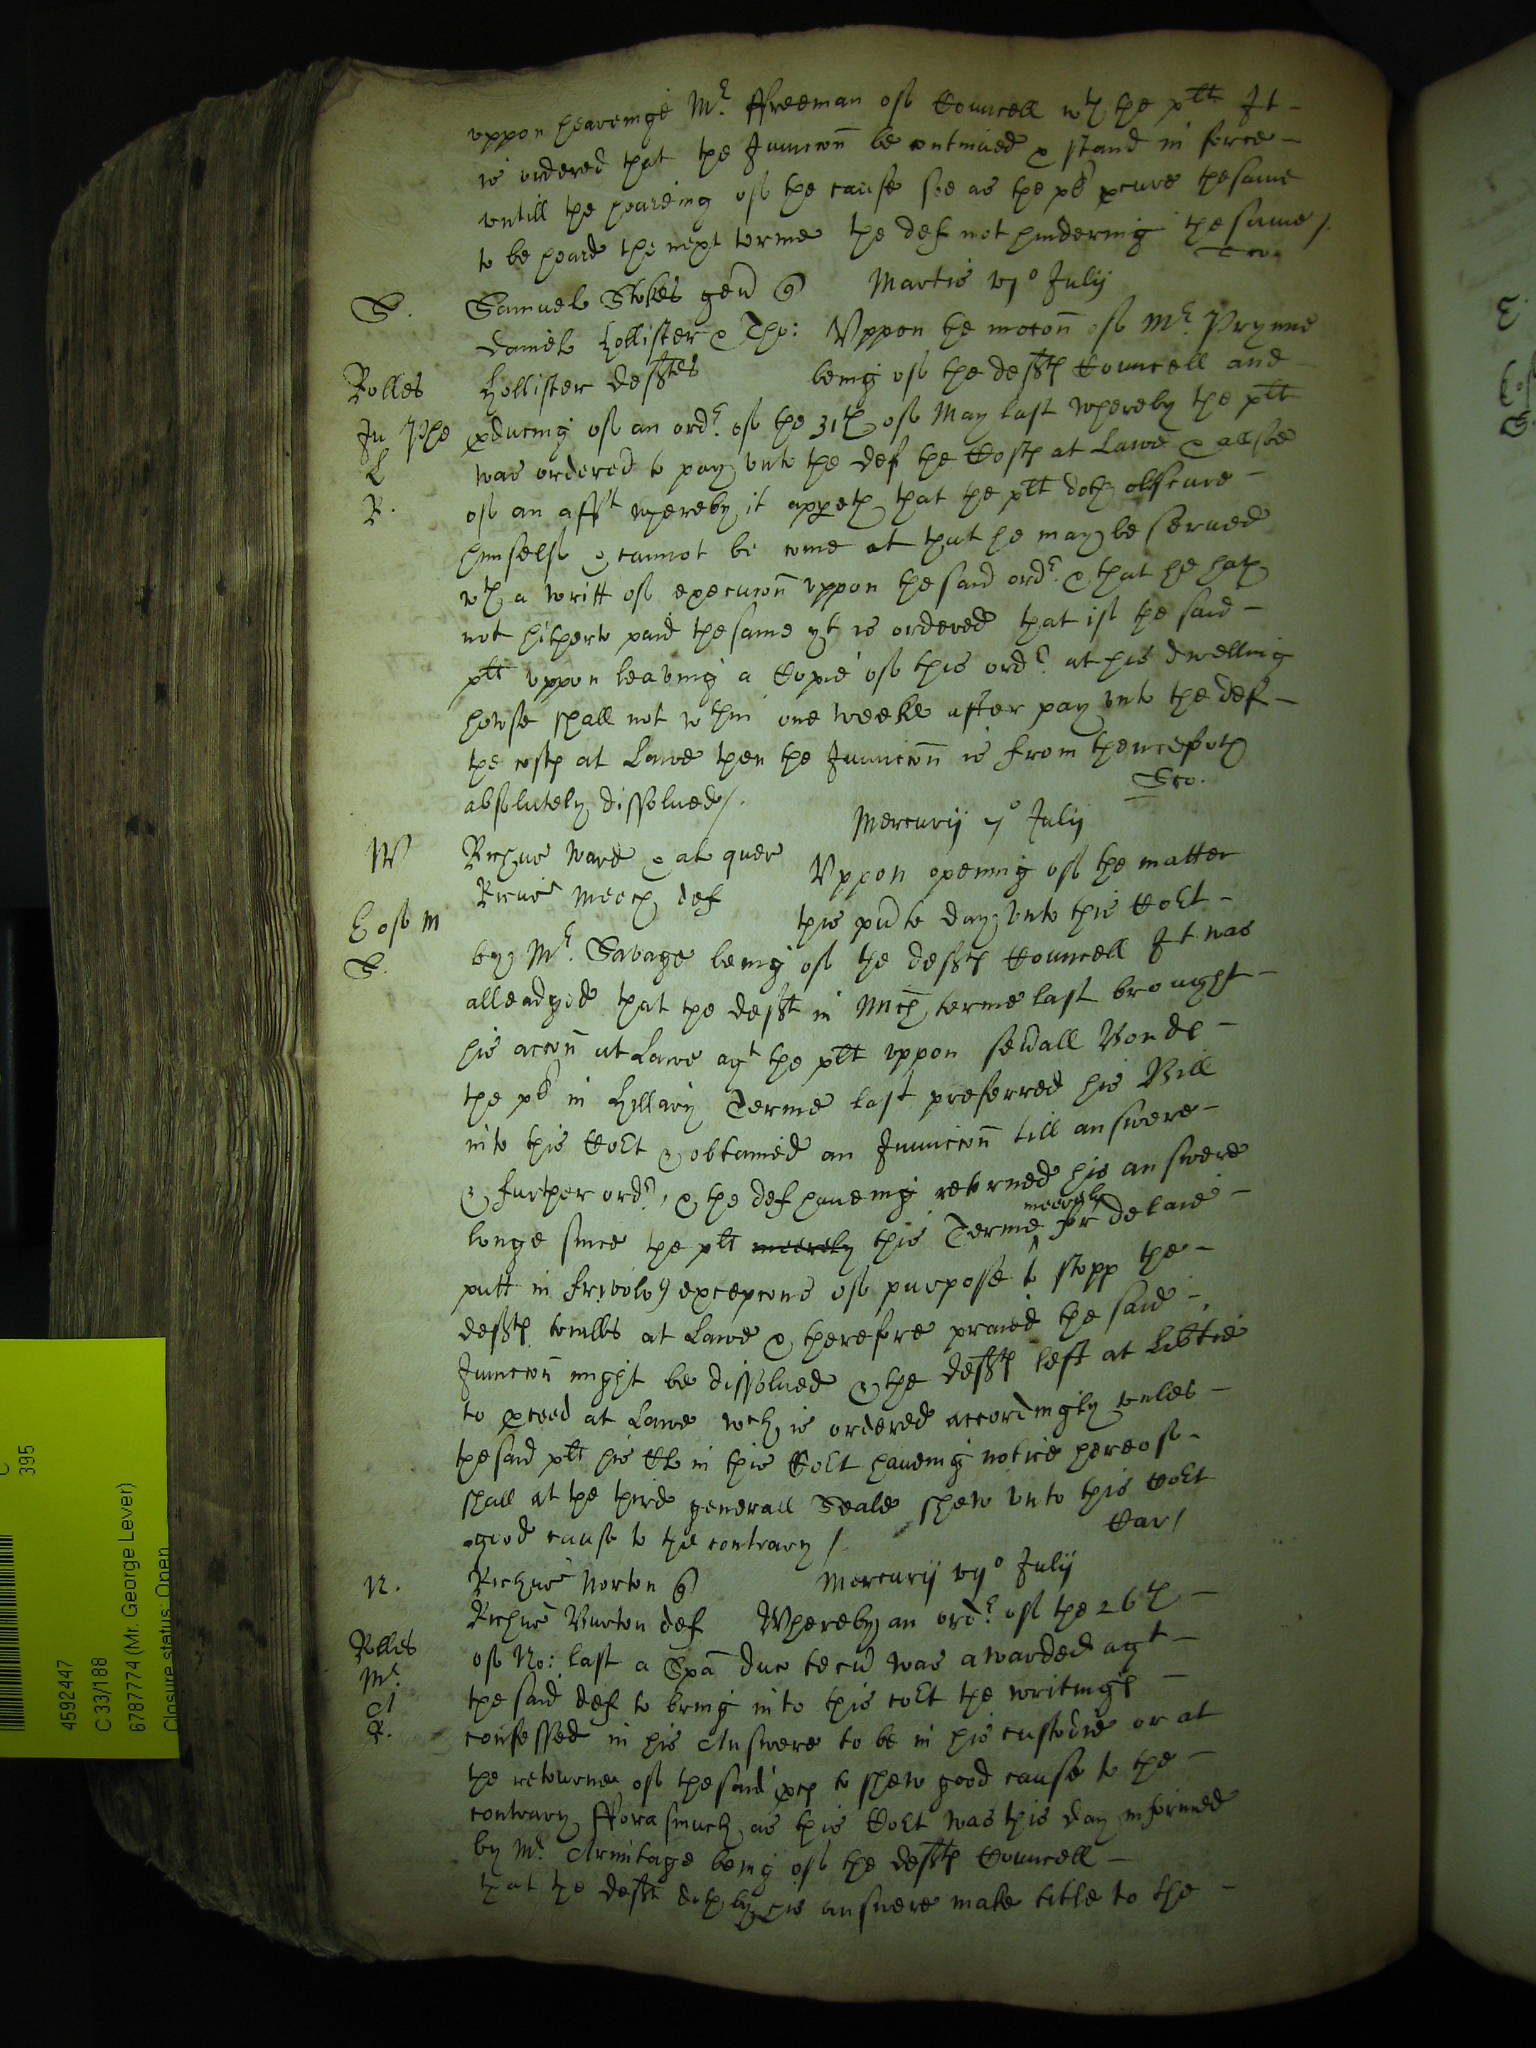 vppon heareinge Mr. ffreeman of Councell wth the plt It
is ordered that the Iniunccon be continued & stand in force
vntill the heareing of the cause soe as the plt pcure thesame
to be heard the next terme the def not hindering thesame /.
S. Samuel Stokes gen q Martis vjo Julij
Daniel Hollister & Tho: Vppon the mocon of Mr. Prynne
Rolles Hollister deftes being of the defts Councell and
pducing of an ordr. of the 31th of May last whereby the plt
L was ordered to pay vnto the def the Costs at Lawe & allsoe
R. of an afft whereby it appeth that the plt doth obscure
himself & cannot be come at that he may be serued
wth a writt of execucon vppon the said ordr. & that he hath
not hitherto paid the same yt is ordered that if the said
plt vppon leaving a Copie of this ordr. at his dwelling
howse shall not wthin one weeke after pay vnto the def
the costs at Lawe then the Iniunccon is from thenceforth
absolutely dissolued /.
Mercurij 7o Julij
W Richus Ward & al quer Vppon opening of the matter
Ricus Meech def this pnte day vnto this Cort
S. by Mr. Savage being of the defts Councell It was
alleadged that the deft in Mich terme last brought
his accon at Lawe agt the plt vppon seuall Bonds
the plt in Hillary Terme last preferred his Bill
into this Cort & obtained an Iniunccon till answere
& further ordr., & the def haueing retorned his answere
longe since the plt meerely this Terme meerely for delaie
putt in frivolous excepcons of purpose to stopp the
defts tryalls at Lawe & therefore praied the said
Iniunccon might be dissolued & the defts left at Libtie
to pceed at Lawe wch is ordered accordingly vnles
the said plt his Clk in this Cort haueing notice hereof
shall at the third generall Seale shew vnto this Cort
good cause to the contrary /.
Car/
N. Richus Norton q Mercurij vijo Julij
Richus Burton def Whereby an ordr. of the 26th
Rolles of No: last a Spa duc tecu was awarded agt
Mr. the said def to bring into this cort the writings
R. confessed in his Answere to be in his custodie or at
the retourne of the said pces to shew good cause to the
contrary fforasmuch as this Cort was this day informed
by Mr. Armitage being of the defts Councell
that the deft doth by his answere make title to the
4592447
C 33/188
6787774 (Mr. George Lever)
Closure status: Open
395